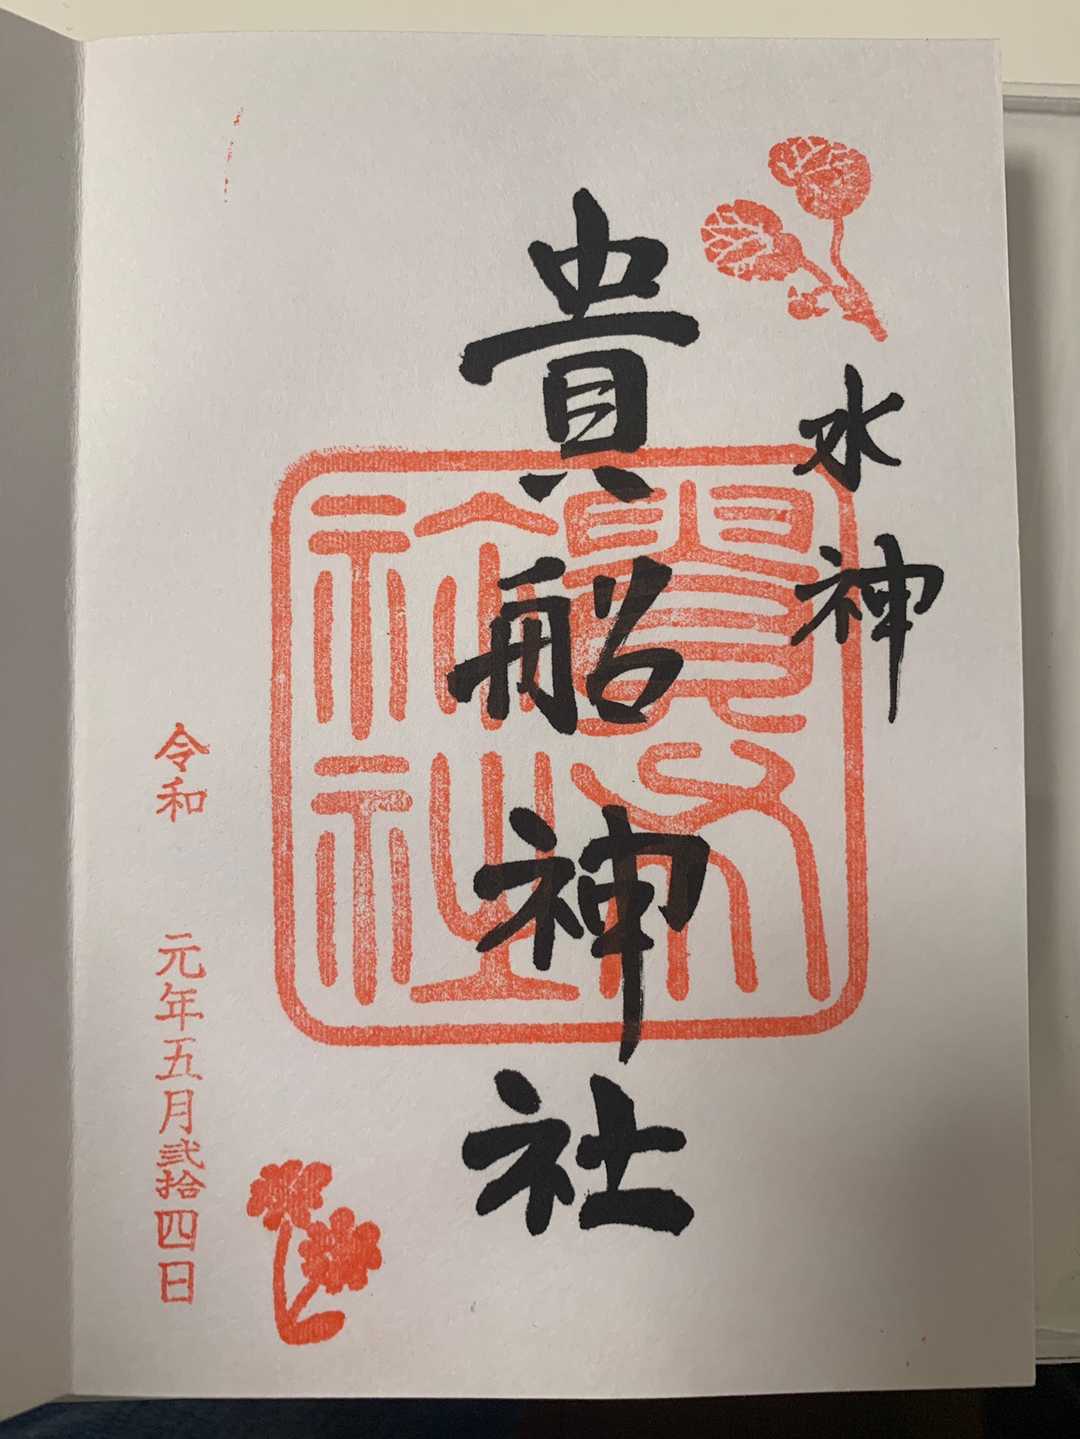 水神
貴船神社
令和 元年五月弐拾四日